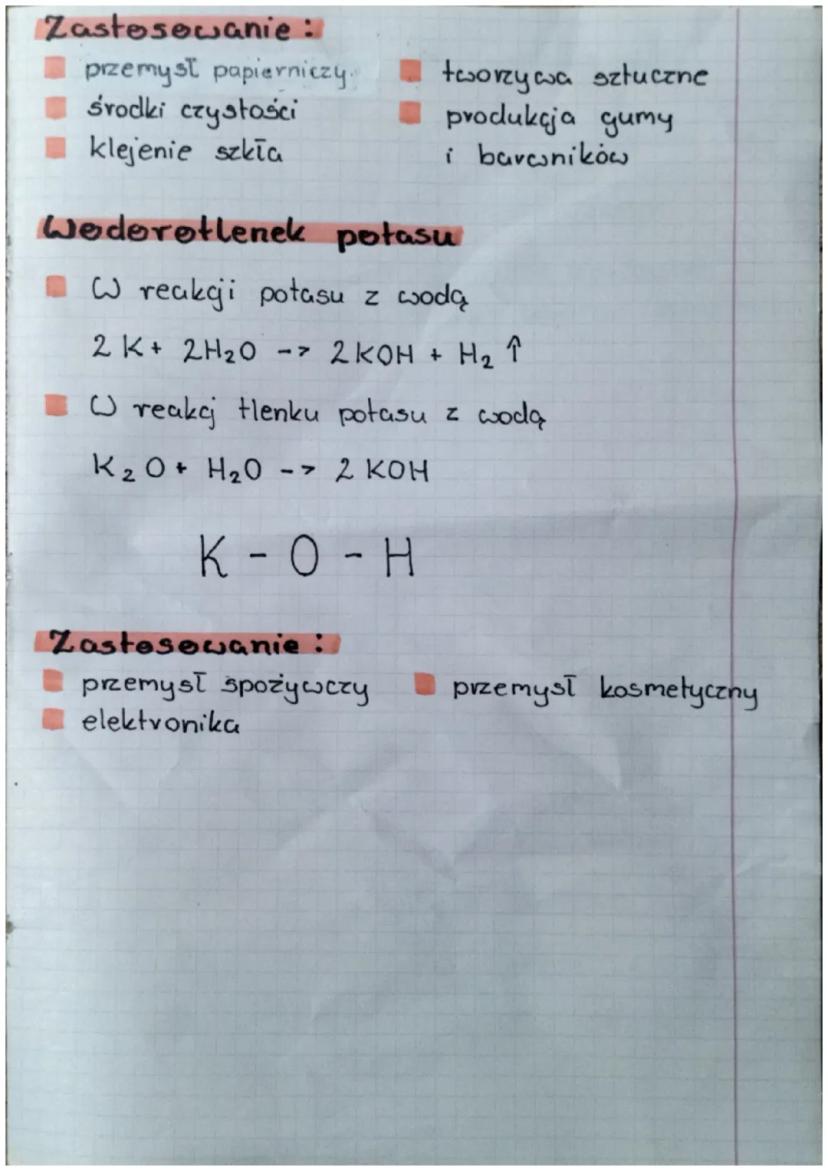 Zastosowanie:
przemysł papierniczy
środki czystości
klejenie szkła
tworzywa sztuczne
produkcja gumy
i barwników
Wodorotlenek potasu
W reakcji potasu z wodą
2 K + 2H₂O --> 2 KOH + H₂ ↑
W reakcj tlenku potasu z wodą
K₂O + H₂O --> 2 KOH
K - O - H
Zastosowanie:
przemysł spożywczy
elektronika
przemysł kosmetyczny